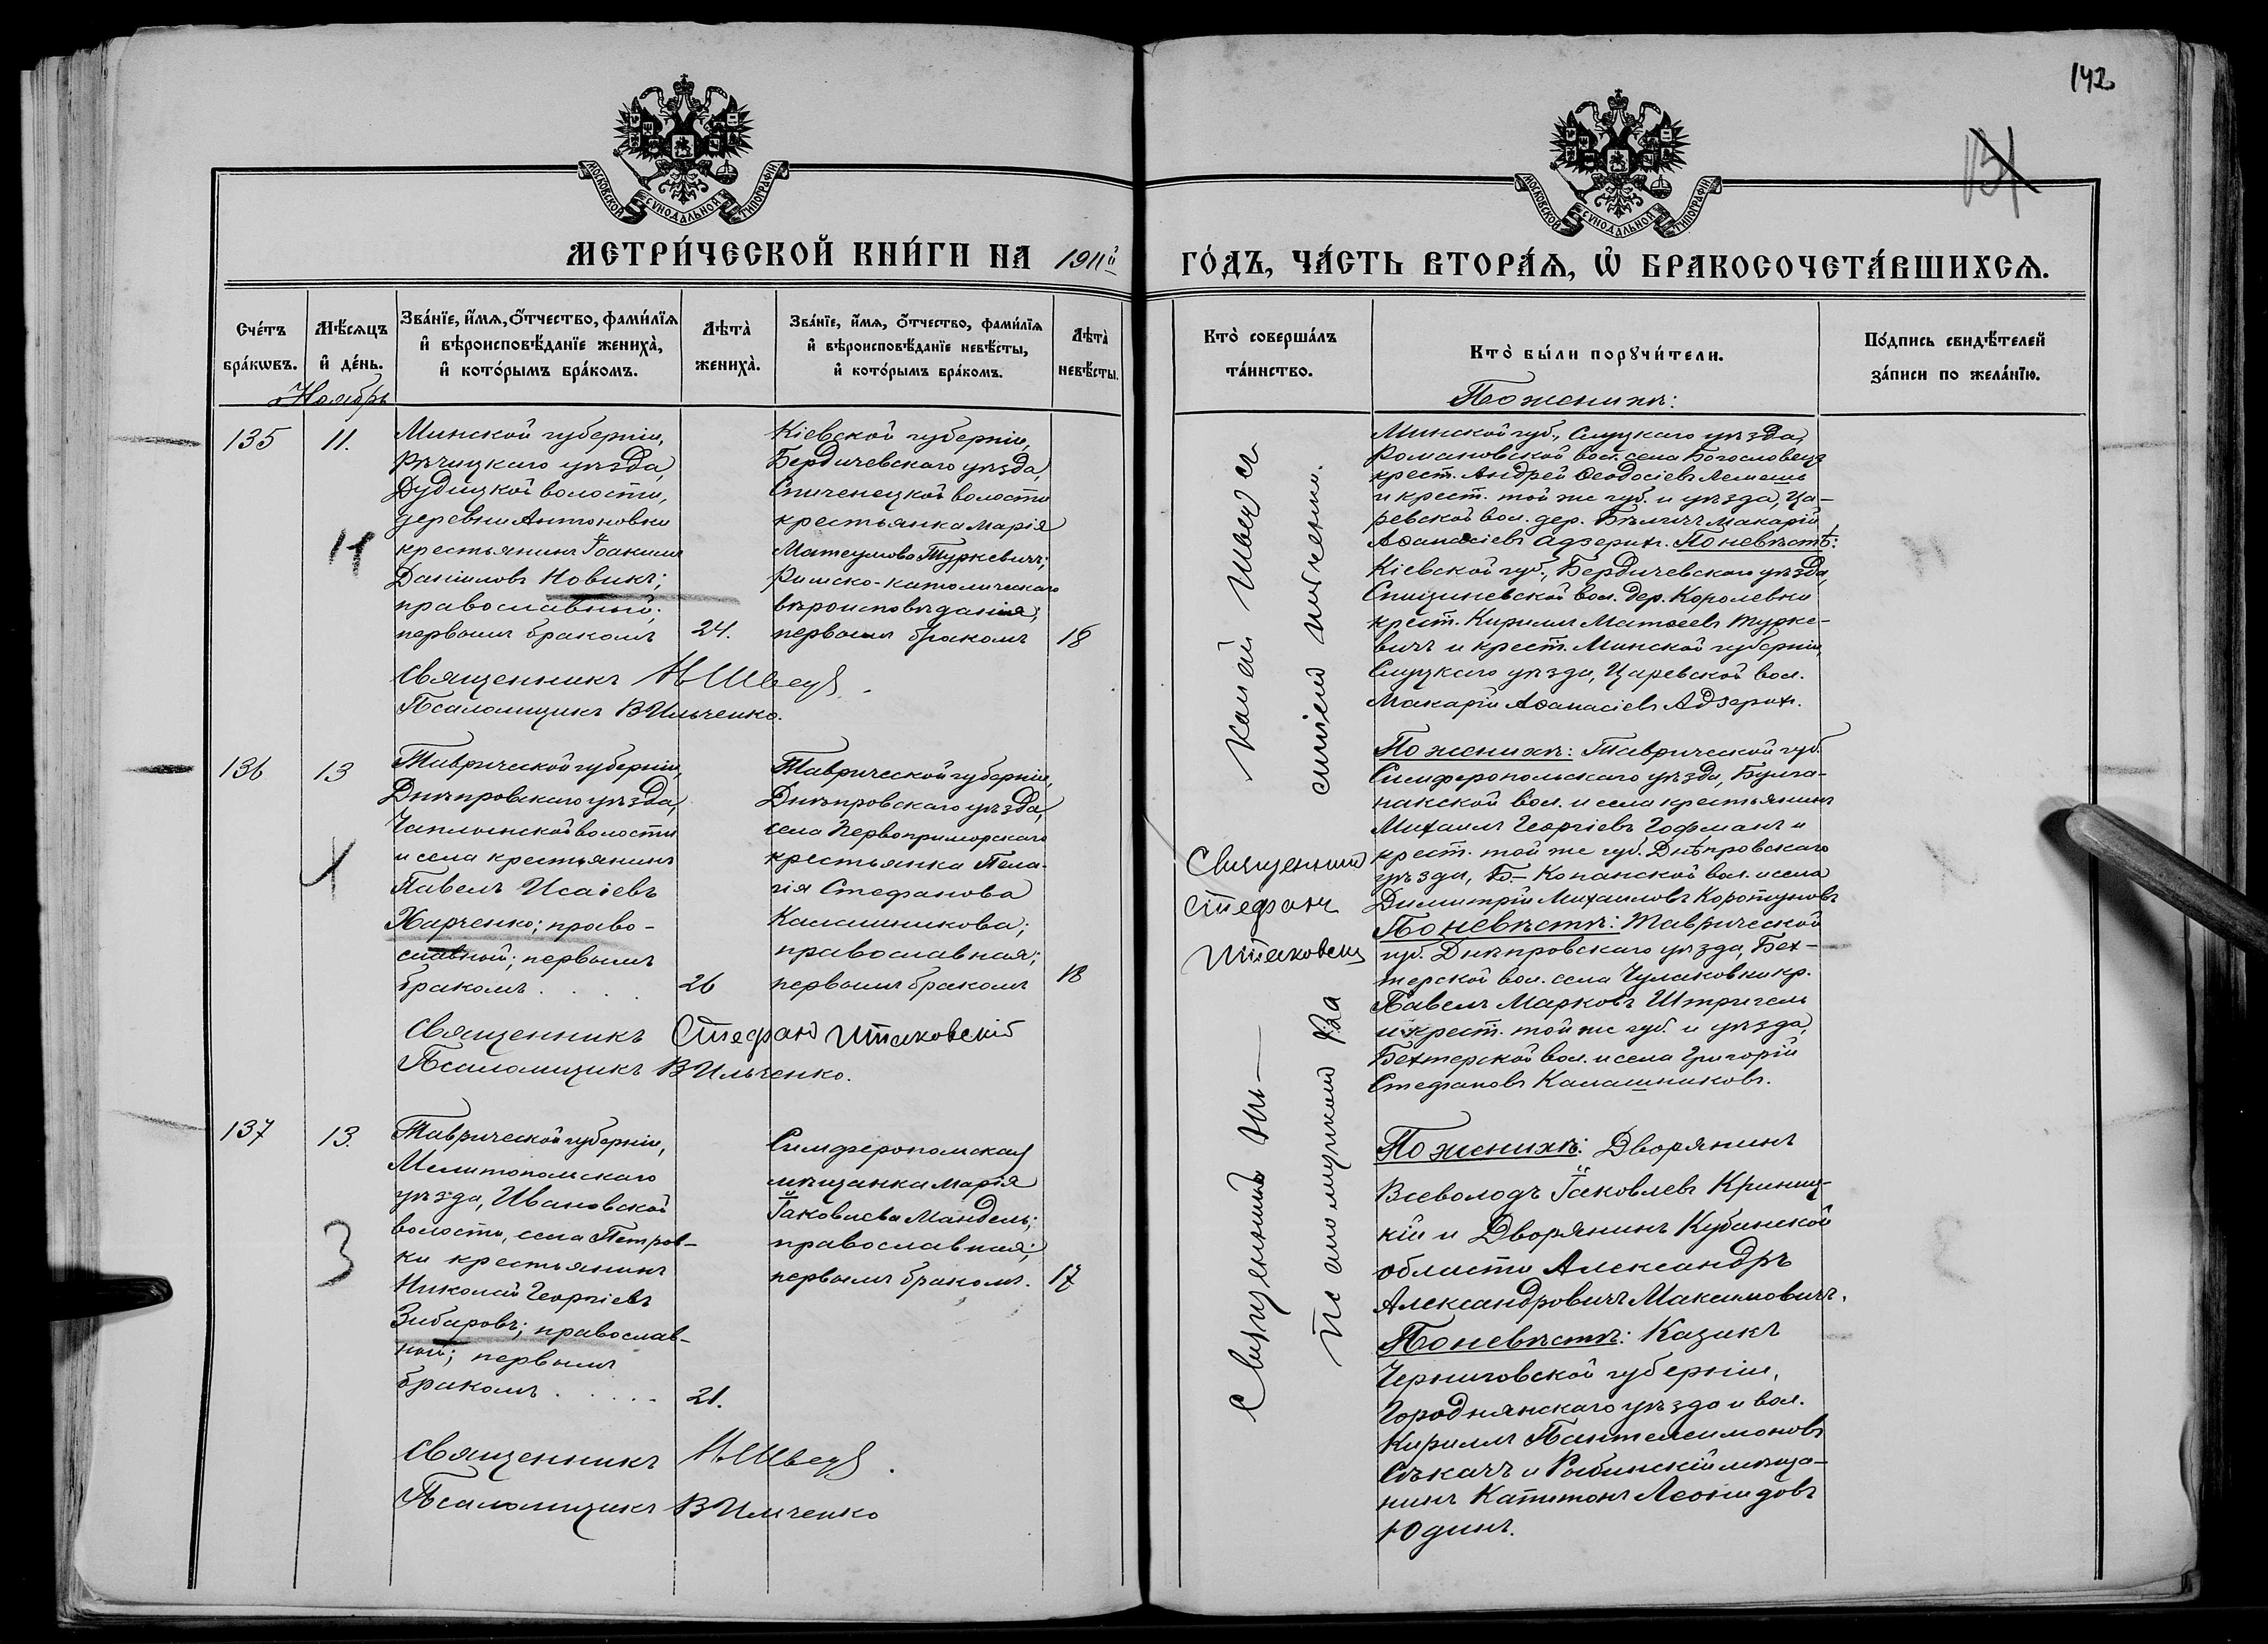 142
МОСКОВСКОЙ СУНОДАЛЬНОЙ ТИПОГРАФІИ
МОСКОВСКОЙ СУНОДАЛЬНОЙ ТИПОГРАФІИ
МЕТРИ́ЧЕСКОЙ КНИ́ГИ НА 1911й ГО́ДЪ, ЧА́СТЬ ВТОРА́Ѧ, Ѡ҆ БРАКОСОЧЕТА́ВШИХСѦ.
Сче́тъ бра́кѡвъ.
Мѣ́сяцъ и҆ де́нь.
Зва́нїе, и҆́мѧ, ѻ҆́тчество, фами́лїѧ
и҆ вѣроисповѣ́данїе жениха̀,
и҆ кото́рымъ бра́комъ.
Лѣта̀ жениха̀.
Зва́нїе, и҆́мѧ, ѻ҆́тчество, фами́лїѧ
и҆ вѣроисповѣ́данїе невѣ́сты,
и҆ кото́рымъ бра́комъ.
Лѣта̀ невѣ́сты.
Кто̀ соверша́лъ та́инство.
Кто̀ бы́ли порꙋчи́тели.
По́дпись свидѣ́телей
за́писи по жела́нїю.
Ноябрь
135
11.
Минской губерніи,
Рѣчицкаго уѣзда,
Дудицкой волости,
деревни Антоновки
крестьянинъ Іоакимъ
Даніиловъ Новикъ;
православный;
первымъ бракомъ
24.
Кіевской губерніи,
Бердичевскаго уѣзда,
Спиченецкой волости
крестьянка Марія
Матеушова Туркевичъ;
Римско-католическаго
вѣроисповѣданія;
первымъ бракомъ
18
Священникъ Н Швецъ.
Псаломщикъ В Ильченко.
По женихѣ:
Минской губ., Слуцкаго уѣзда,
Романовской вол. села
крест. Андрей Ѳеодосіевъ Лемешъ
и крест. той же губ. и уѣзда, Ца-
ревской вол. дер. Макарій
Аѳанасіевъ Адзерихъ. По невѣстѣ:
Кіевской губ., Бердичевскаго уѣзда,
вол. дер. Королевки
крест. Кириллъ Матѳеевъ Турке-
вичъ и крест. Минской губерніи,
Слуцкаго уѣзда, Царевской вол.
Макарій Аѳанасіевъ Адзерихъ.
136
13
Таврической губерніи,
Днѣпровскаго уѣзда,
Чаплинской волости
и села крестьянинъ
Павелъ Исаіевъ
Харченко; право-
славный; первымъ
бракомъ . . . .
26
Таврической губерніи,
Днѣпровскаго уѣзда,
села Первоприморскаго
крестьянка Пела-
гія Стефанова
Калашникова;
православная;
первымъ бракомъ
18
Священникъ Стефанъ Штаковскій
Псаломщикъ В Ильченко.
Священникъ
Стефанъ
По женихѣ: Таврической губ.
Симферопольскаго уѣзда, Булга-
накской вол. и села крестьянинъ
Михаилъ Георгіевъ Гофманъ и
крест. той же губ. Днѣпровскаго
уѣзда, Б.-Копанской вол. и села
Димитрій Михаиловъ Коротуновъ
По невѣстѣ: Таврической
губ. Днѣпровскаго уѣзда, Бех-
терской вол. села Чулаковки кр.
Павелъ Марковъ Штригель
и крест. той же губ. и уѣзда,
Бехтерской вол. и села Григорій
Стефановъ Калашниковъ.
137
13.
3
Таврической губерніи,
Мелитопольскаго
уѣзда, Ивановской
волости, села Петров-
ки крестьянинъ
Николай Георгіевъ
Зибаровъ; православ-
ной; первымъ
бракомъ . . . . .
21.
Симферопольская
мѣщанка Марія
Іаковлева Мандель;
православная;
первымъ бракомъ.
17
Священникъ Н Швецъ.
Псаломщикъ В Ильченко
Священникъ Ни-
колай Швецъ съ
По женихѣ: Дворянинъ
Всеволодъ Іаковлевъ Криниц-
кій и Дворянинъ Кубанской
области Александръ
Александровичъ Максимовичъ.
По невѣстѣ: Казакъ
Черниговской губерніи,
Городнянскаго уѣзда и вол.
Кириллъ Пантелеимоновъ
Сѣкачъ и мѣща-
нинъ Капитонъ Леонидовъ
Юдинъ.